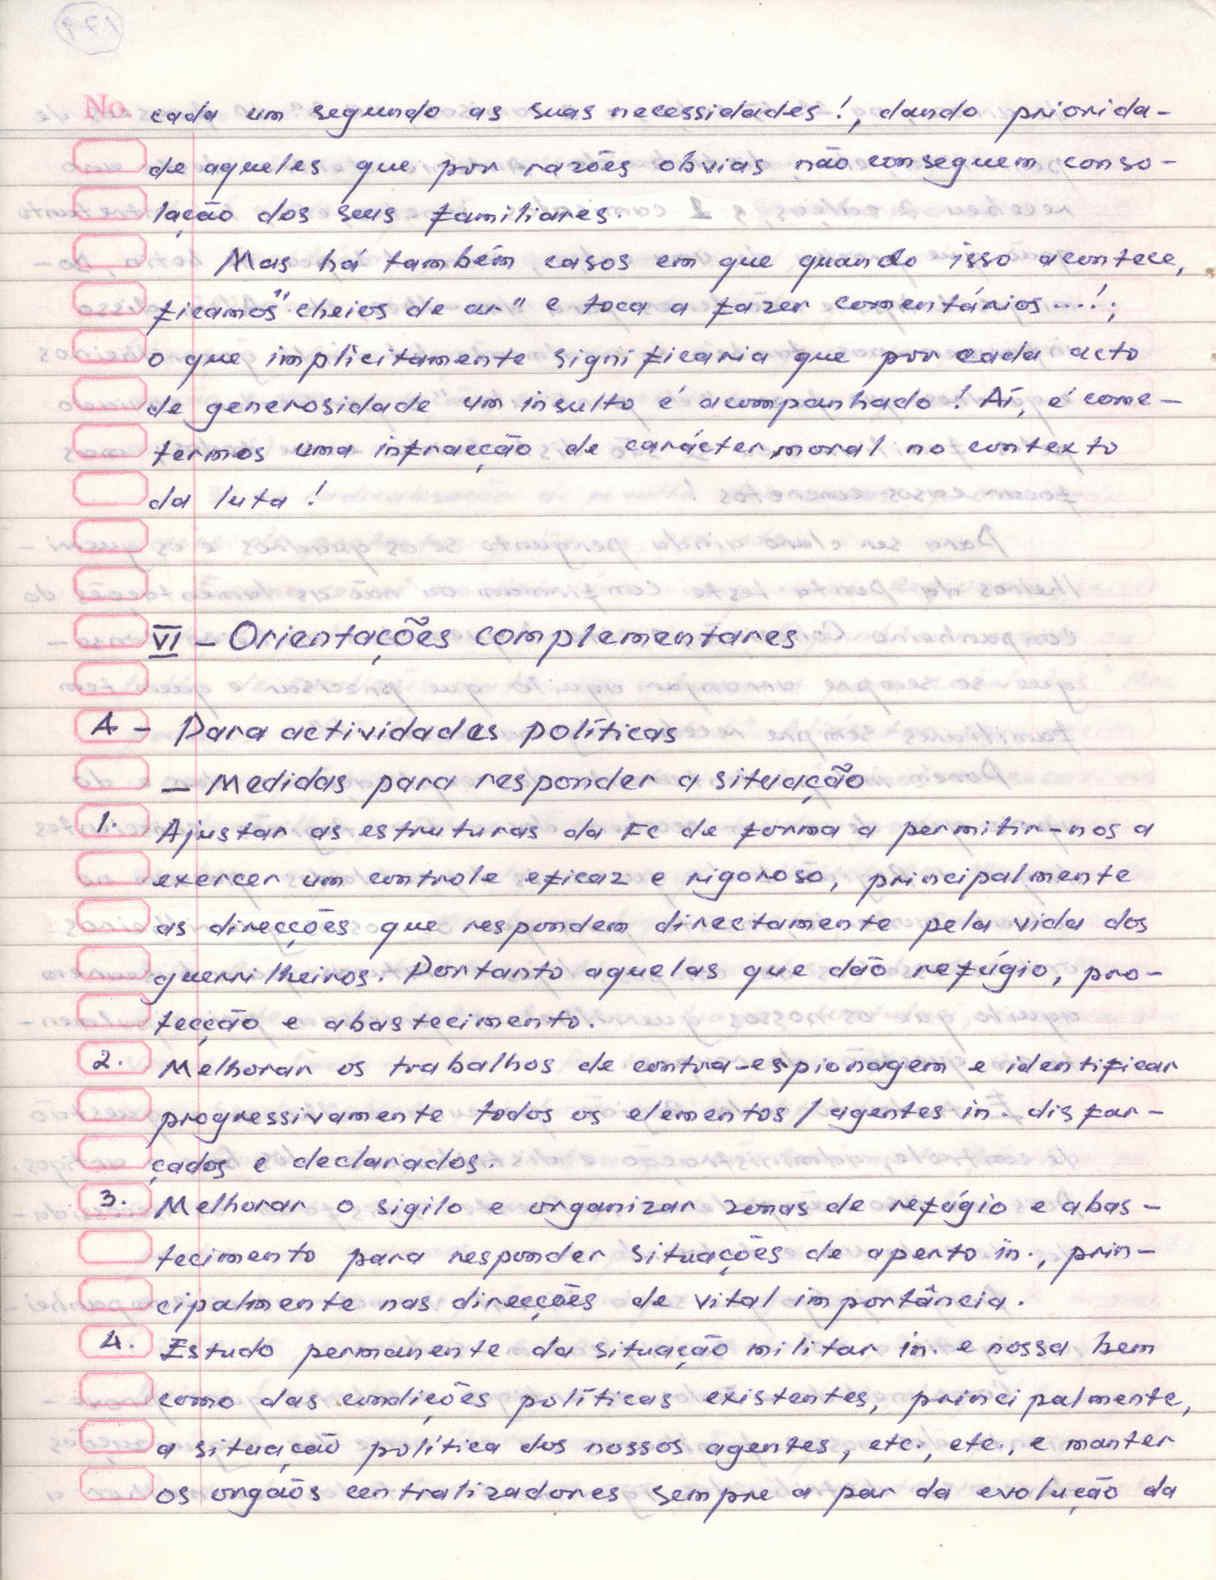 No
cada um segundo as suas necessidades!, dando priorida-
de aqueles que por razões óbvias não conseguem conso-
lação dos seus familiares.
Mas há também casos em que quando isso acontece,
ficamos "cheios de ar" e toca a fazer comentários....!;
o que implicitamente significaria que por cada acto
de generosidade um insulto é acompanhado! Aí, é come-
termos uma infracção de carácter moral no contexto
da luta!
VI - Orientações complementares
A - Para actividades políticas
- Medidas para responder a situação
1. Ajustar as estruturas da FC de forma a permitir-nos a
exercer um controle eficaz e rigoroso, principalmente
as direcções que respondem directamente pela vida dos
guerrilheiros. Portanto aquelas que dão refúgio, pro-
tecção e abastecimento.
2. Melhorar os trabalhos de contra-espionagem e identificar
progressivamente todos os elementos/agentes in. disfar-
çados e declarados.
3. Melhorar o sigilo e organizar zonas de refúgio e abas-
tecimento para responder situações de aperto in., prin-
cipalmente nas direcções de vital importância.
4. Estudo permanente da situação militar in. e nossa bem
como das condições políticas existentes, principalmente,
a situação política dos nossos agentes, etc., etc., e manter
os orgãos centralizadores sempre a par da evolução da